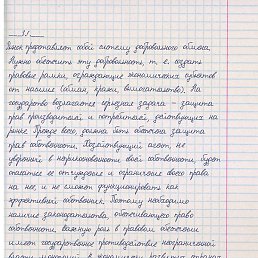 — 31 —
Рынок представляет собой систему добровольного обмена.
Нужно обеспечить эту добровольность, т. е. создать
правовые рамки, ограждающие экономических субъектов
от насилия (обман, кражи, вымогательство). На
государство возлагается серьезная задача - защита
прав производителей и потребителей, действующих на
рынке. Прежде всего, должна быть обеспечена защита
прав собственности. Хозяйствующий агент, не
уверенный в неприкосновенности своей собственности, будет
опасаться ее отчуждения и ограничения своего права
на нее, и не сможет функционировать как
эффективный собственник. Поэтому необходимо
наличие законодательства, обеспечивающего право
собственности. Важную роль в правовом обеспечении
имеет государственное противодействие неограниченной
власти монополий в экономике развитых странах